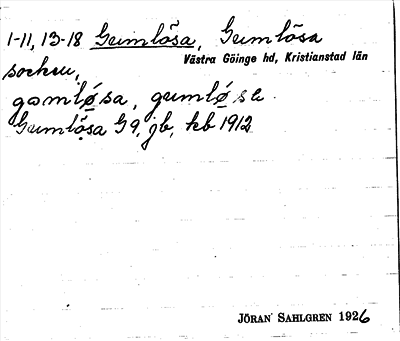 1-11, 13-18 Gumlösa, Gumlösa
Västra Göinge hd, Kristianstad län
socken,
gomlø̣sa, gumlø̣sa.
Gumlösa G 9, jb, kb 1912
JÖRAN SAHLGREN 1926